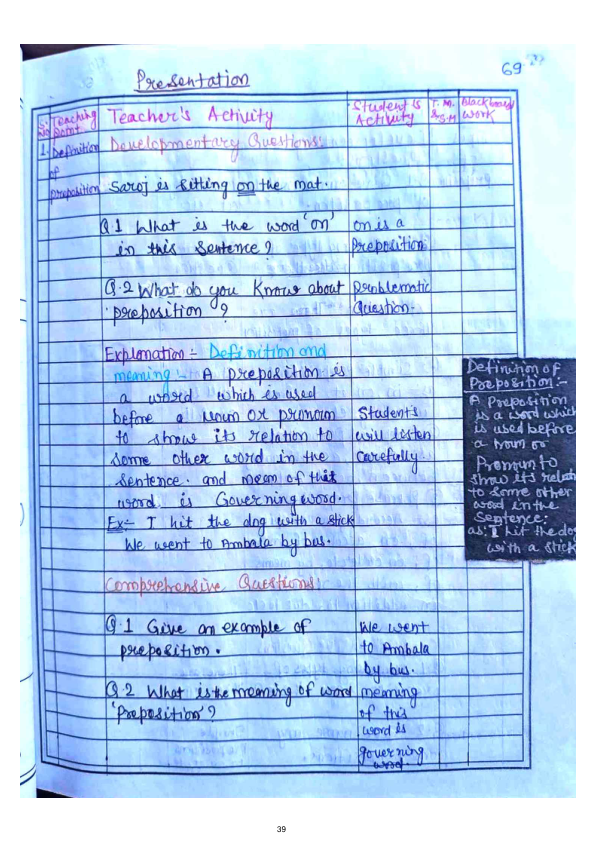 69
Presentation
S. No Teaching Point Teacher's Activity Student's Activity T.M. & S.M Blackboard Work
1. Definition of preposition
Developmentary Questions:
Saroj is sitting on the mat.
Q.1 What is the word 'on'
in this sentence?
on is a
Preposition
Q.2 What do you know about
preposition?
Problematic
Question.
Explanation:- Definition and
meaning:- A preposition is
a word which is used
before a Noun or pronoun
to show its relation to
some other word in the
sentence. and mean of this
word is Governing word.
Students
will listen
carefully
Ex:- I hit the dog with a stick
We went to Ambala by bus.
Definition of
Preposition:-
A Preposition
is a word which
is used before
a noun or
Pronoun to
show its relat
to some other
word in the
Sentence.
as: I hit the dog
with a stick
Comprehensive Questions:
Q.1 Give an example of
preposition.
We went
to Ambala
by bus.
Q.2 What is the meaning of word
'Preposition'?
meaning
of this
word is
governing
word.
39